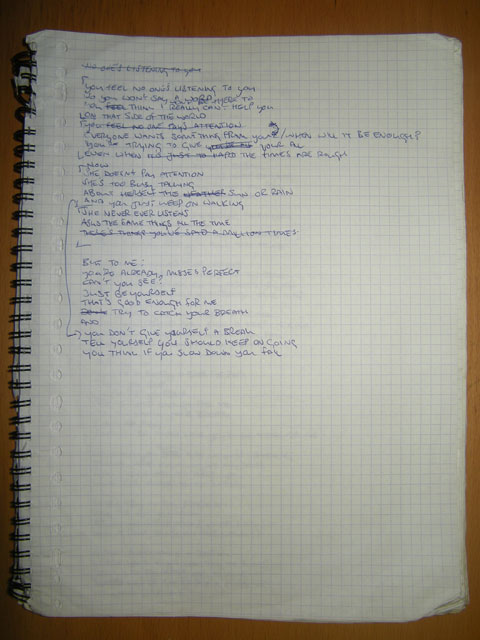 NO ONE'S LISTENING TO YOU
YOU FEEL NO ONE'S LISTENING TO YOU
SO YOU WON'T SAY A WORD
YOU FEEL THINK I REALLY CAN'T HELP YOU
ON THAT SIDE OF THE WORLD
YOU FEEL NO ONE PAYS ATTENTION
EVERYONE WANTS SOMETHING FROM YOU / WHEN WILL IT BE ENOUGH?
TRYING TO GIVE YOUR ALL
EVEN WHEN HARD THE TIMES ARE ROUGH
NOW
SHE DOESN'T PAY ATTENTION
SHE'S TOO BUSY TALKING
ABOUT HERSELF THE WEATHER SUN OR RAIN
AND YOU JUST KEEP ON WALKING
SHE NEVER EVER LISTENS
ASKS THE SAME THINGS ALL THE TIME
THERE'S THINGS YOU'VE SAID A MILLION TIMES
BUT TO ME:
YOU'RE ALREADY MISSES PERFECT
CAN'T YOU SEE?
JUST BE YOURSELF
THAT'S GOOD ENOUGH FOR ME
TRY TO CATCH YOUR BREATH
AND
YOU DON'T GIVE YOURSELF A BREAK
TELL YOURSELF YOU SHOULD KEEP ON GOING
YOU THINK IF YOU SLOW DOWN YOU